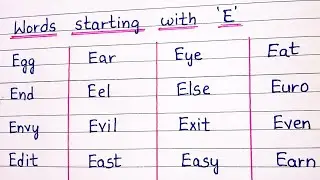 Words starting with 'E'
Egg Ear Eye Eat
End Eel Else Euro
Envy Evil Exit Even
Edit East Easy Earn